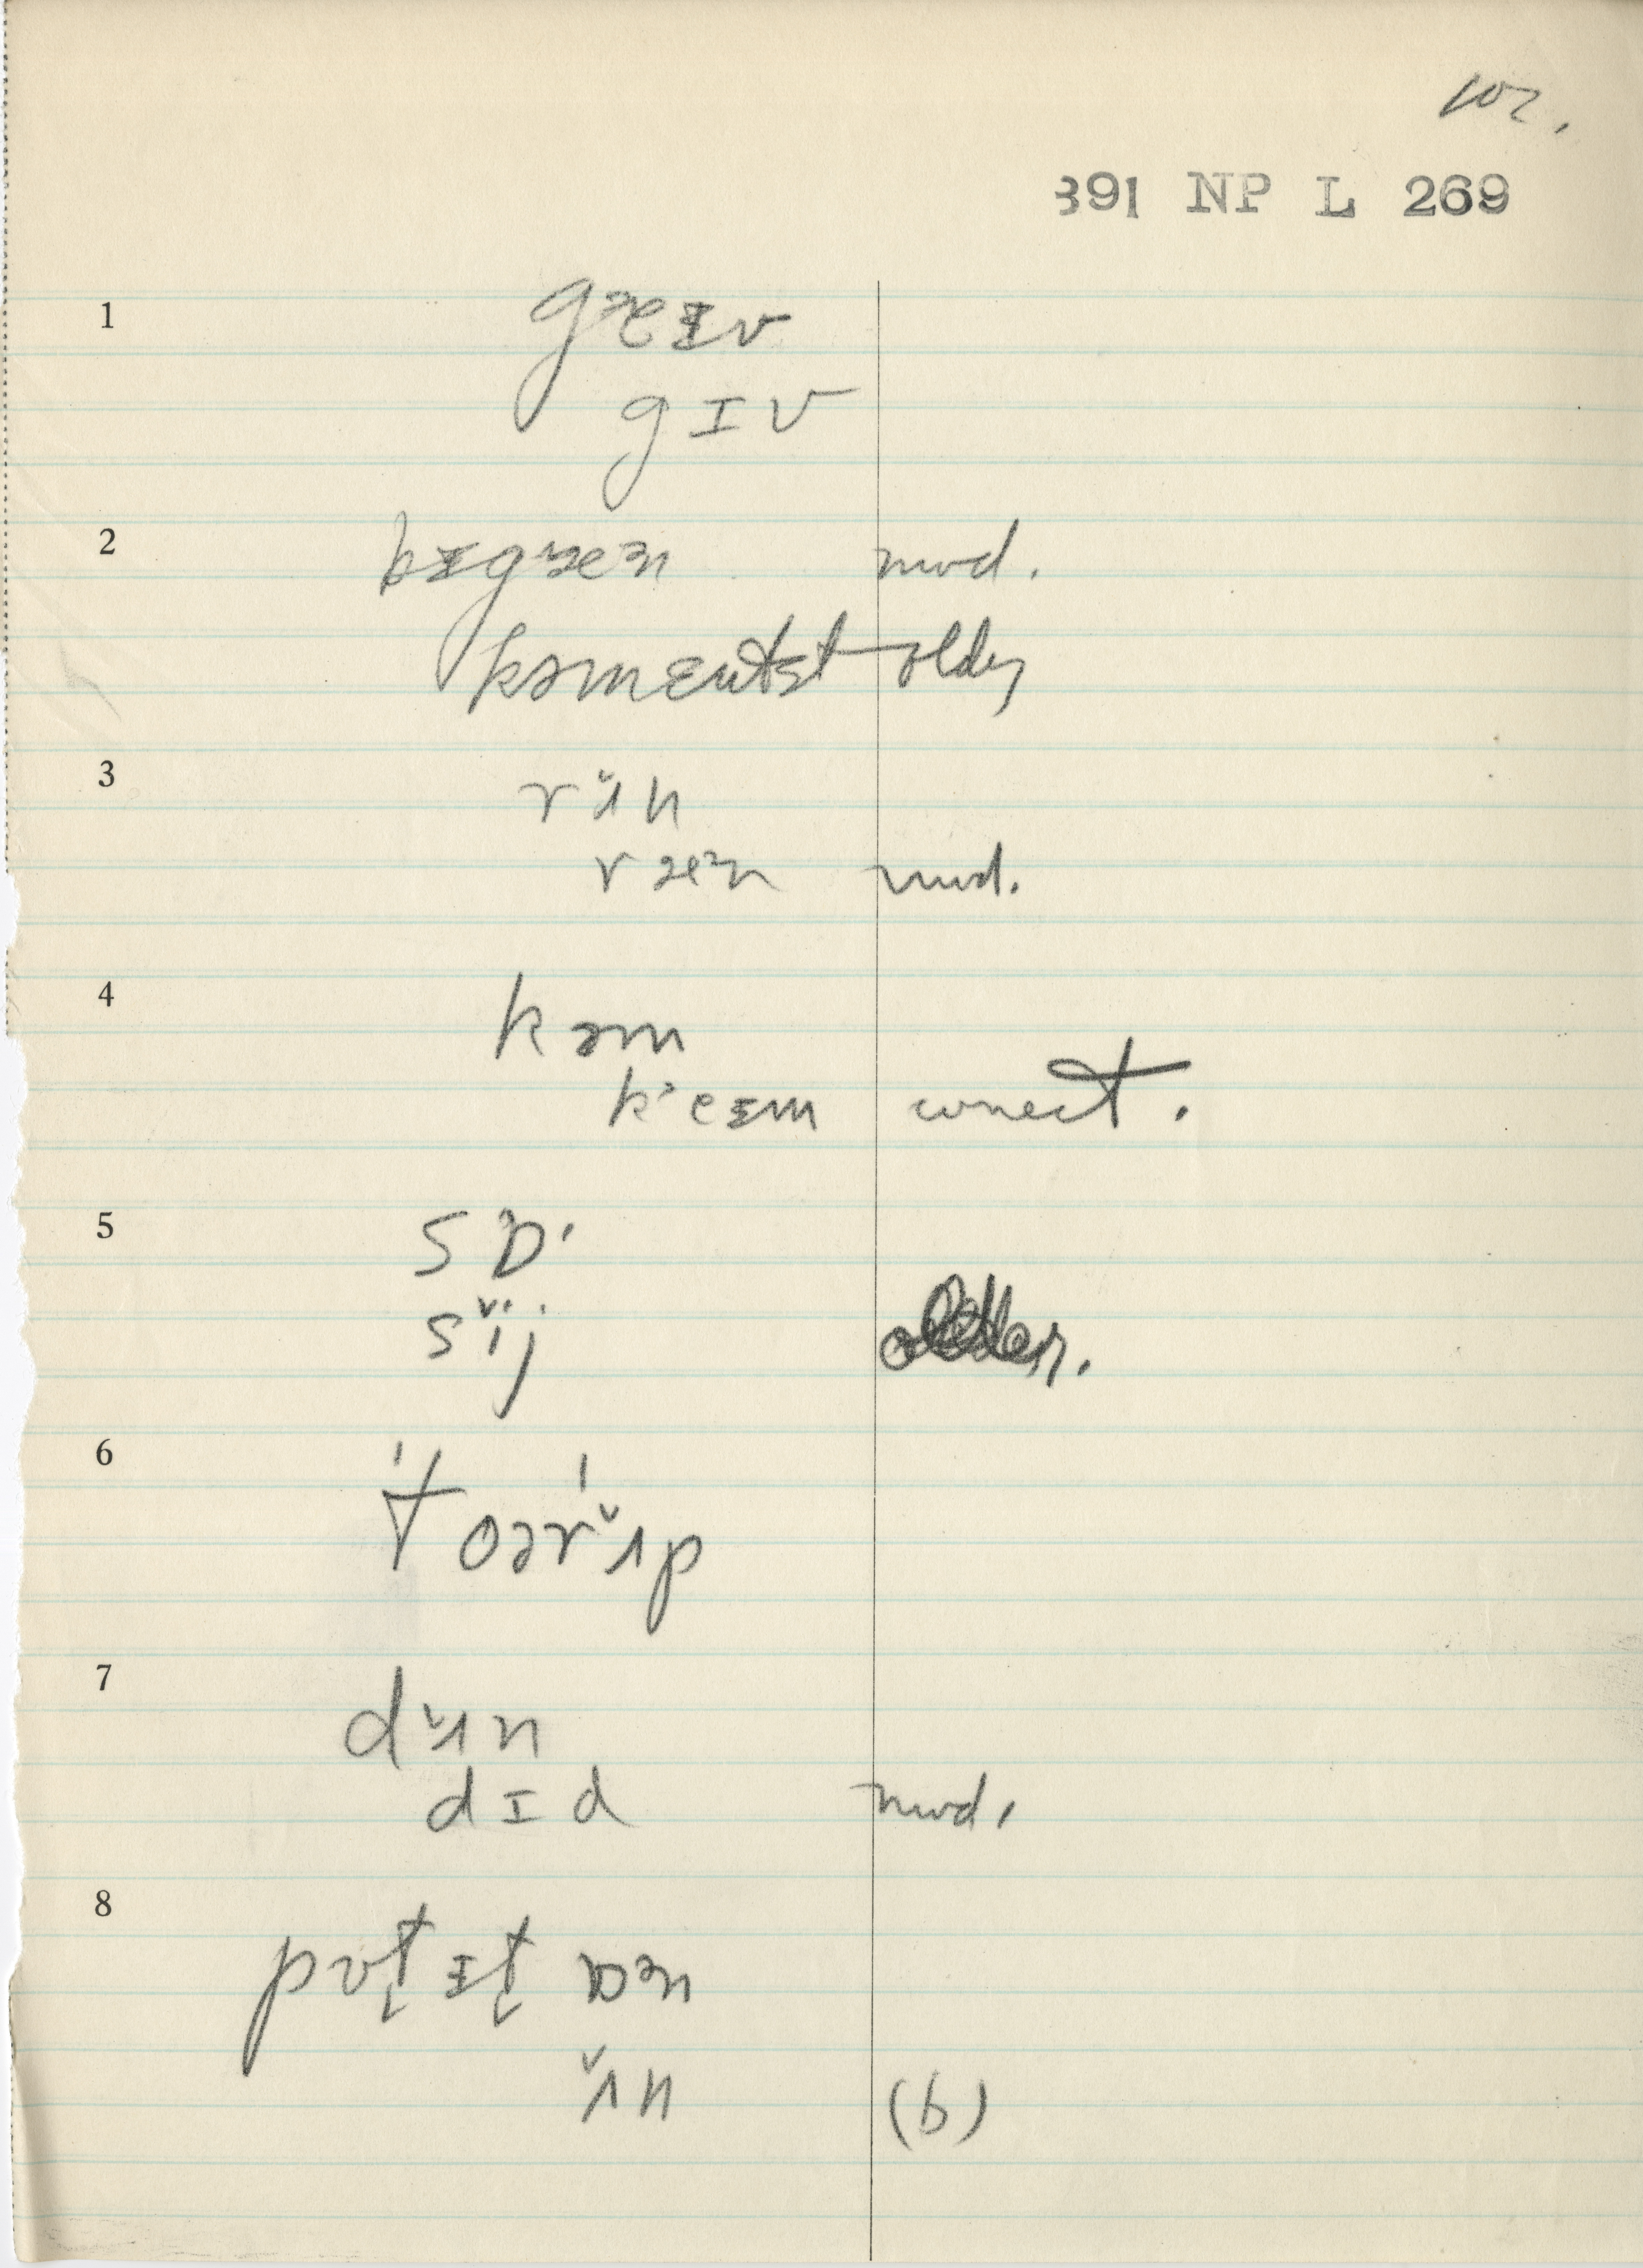 102.
391 NP L 269
1 gɛɪv
gɪv
2 bɪgæən mod.
kəmɛntst older
3 rʌ̌n
ræən mod.
4 kəm
kʾeɪm correct.
5 sɒ'
sɪ̌j older.
6 't oərʌ̌p
7 dʌ̌n
dɪd mod.
8 pʊt̬ ɪt̬ ɒən
ʌ̌n (b)